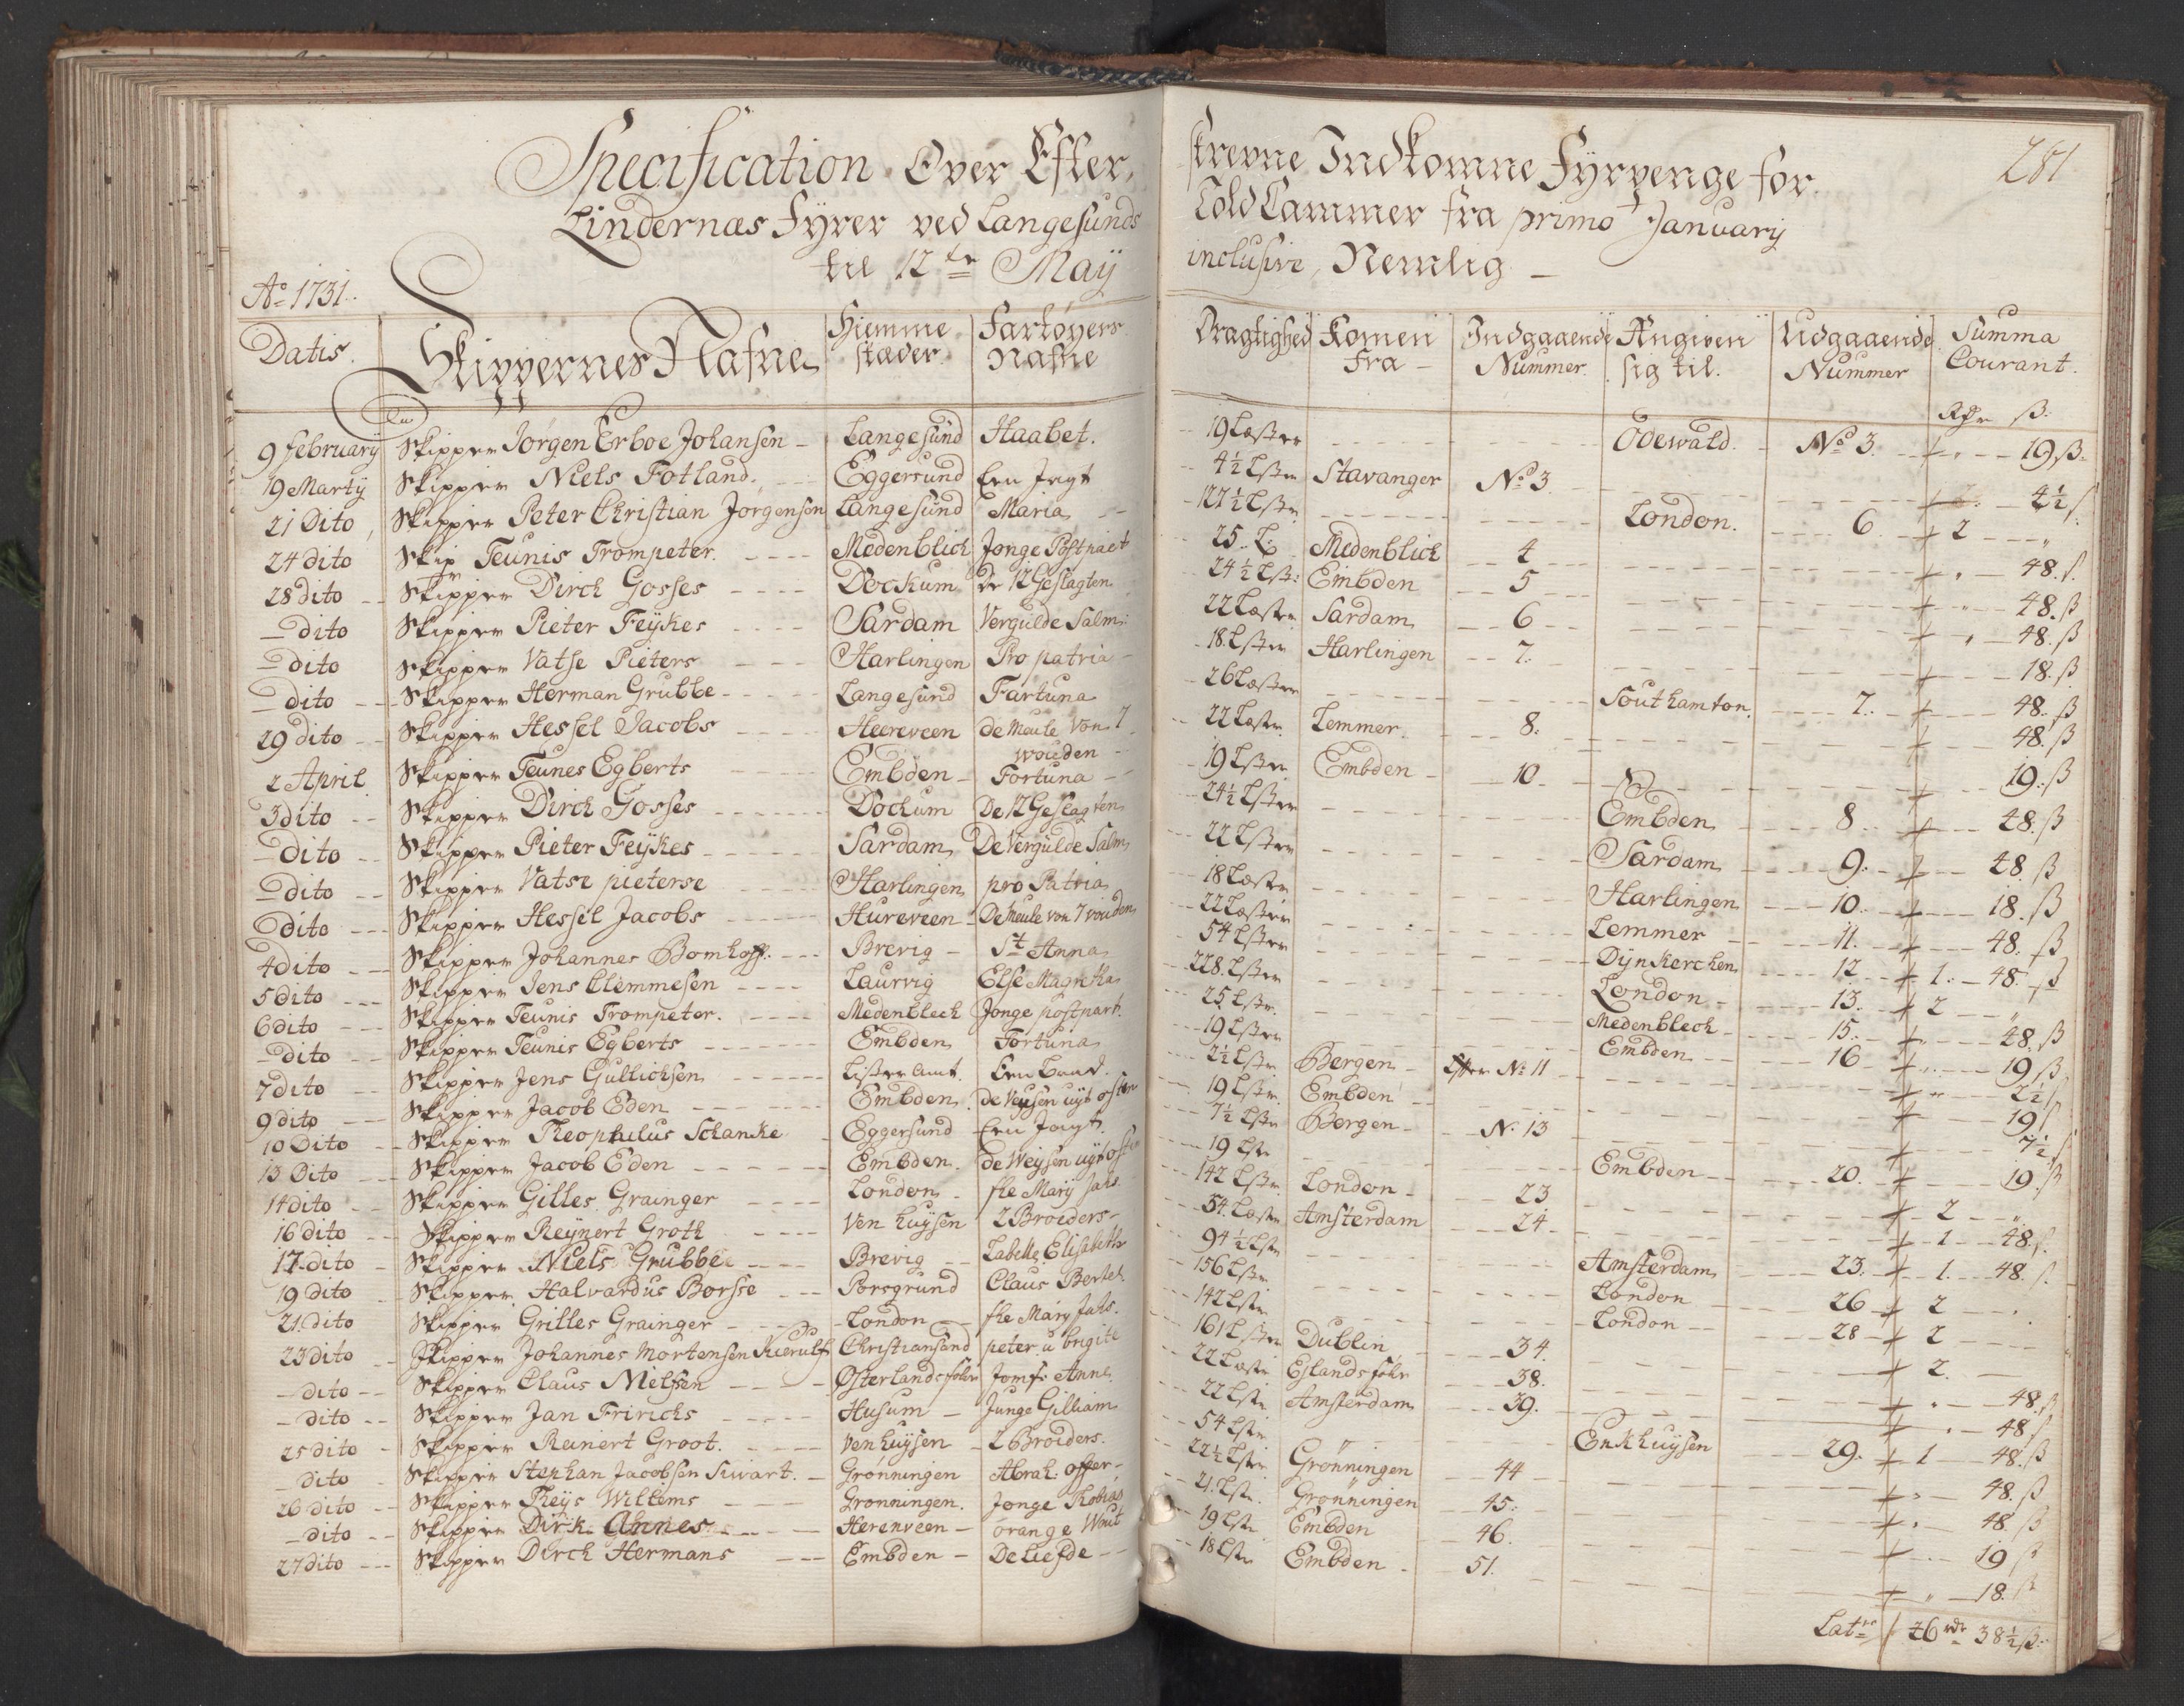 Specification Over Efter, skrevne Indkomne Fÿrpenge for
281
Lindernæs Fÿrer ved Langesunds Told Cammer fra primo January
til 12te Maÿ inclusive, Nemlig
Ao 1731.
Datis. Skippernes Nafne Hiemme stæder Fartøyers Nafne Dragtighed Komen fra Indgaaende Nummer Angiven sig til. Udgaaende Nummer Summa Courant.
Rdr ß:
9 february Skipper Jørgen Erboe Johansen Langesund Haabet. 19 Læster Odewald. No 3. 19 ß
19 Martÿ Skipper Niels Fotland. Eggersund Een Jagt 4½ Lster Stavanger No 3 4½ ß
21 Dito Skipper Peter Christian Jørgensen Langesund Maria 127½ Lster London. 6. 2
24 dito Skip Teunis Trompeter. Medenblick Jonge Postpaert 25 L: Medenblick 4 48. ß
28 dito Skipper Dirch Gosses Dockum De 12 Geslagten 24½ Lß: Embden 5 48. ß
dito Skipper Pieter Feÿkes Sardam Vergulde Salm: 22 Læster Sardam 6 48. ß
dito Skipper Vatse Pieters Harlingen Pro patria 18 Lster Harlingen 7. 18. ß
dito Skipper Herman Grubbe Langesund Fartuna 26 Læster Southamton. 7. 48. ß
29 dito Skipper Hessel Jacobs Heereveen de Meule Von 7 wouden 22 Læster Lemmer. 8. 48. ß
2 April Skipper Teunes Egberts Embden Fortuna 19 Lster Embden 10 19. ß
3 dito Skipper Dirch Gosses Dockum De 12 Geslagten 24½ Lster Embden 8 48. ß
dito Skipper Pieter Feÿkes Sardam De Vergulde Salm 22 Lster Sardam 9. 48. ß
dito Skipper Vatse pieterse Harlingen pro Patria 18 Læster Harlingen 10. 18. ß
dito Skipper Hessel Jacobs Hureveen De Meule von 7 vouden 22 Læster Lemmer 11. 48. ß
4 dito Skipper Johannes Bomhoff. Brevig St Anna 54 Lster Dÿnkerchen 12 1. 48. ß
5 dito Skipper Jens Clemmesen Laurvig Else Magretha 228. Lster London 13. 2
6 dito Skipper Teunis Trompeter. Medenblech Jonge postpart. 25 Lster Medenblech 15. 48. ß
dito Skipper Teunis Egberts Embden Fortuna 19 Lster Embden 16 19 ß
7 dito Skipper Jens Gullichsen Lister Amt. Een Baad. 2½ Lster Bergen Efter No 11 2½ ß
9 dito Skipper Jacob Eden Embden de Veysen uyt osten 19 Lster Embden 19 ß
10 Dito Skipper Theophulus Schanke Eggersund Een Jagt. 7½ Lster Bergen N. 13 7½ ß
13 Dito Skipper Jacob Eden Embden. de Weysen uyt osten 19 Lster Embden 20. 19. ß
14 dito Skipper Gilles Grainger London the Marÿ Jahs. 142 Lster London 23 2
16 dito Skipper Reÿnert Groth Ven huysen 2 Broeders 54 Læster Amsterdam 24 1 48. ß
17 dito Skipper Niels Grubbe Brevig Labelle Elisabeth 94½ Lster Amsterdam 23. 1. 48. ß
19 dito Skipper Halvardus Borsse Porsgrund Claus Bertel 156 Lster London 26 2
21. dito Skipper Grilles Grainger London the Marÿ Jahs. 142 Lster London 28 2
23 dito Skipper Johannes Mortensen Kierulf Christiansand peter u brigite 161 Lster Dublin 34. 2.
dito Skipper Claus Nielsen Østerlandsføhr Jomfr Anne 22 Læster Eslandsføhr 38. 48. ß
dito Skipper Jan Fririchs Husum Junge Gilliam 22 Lster Amsterdam 39. 48 ß
25 dito Skipper Reinert Groot. Venhuysen 2 Broiders. 54 Lster Enkhuysen 29. 1 48. ß
dito Skipper Stephan Jacobsen Swart. Grønningen Abrah: offer 22½ Lster Grønningen 44 48. ß
26 dito Skipper Theys Willems Grønningen. Jonge Thobias 21. Lster Grønningen 45. 48 ß
dito Skipper Dirk Annes Herenveen orange Wout 19 Lster Embden 46. 19 ß
27 dito Skipper Dirch Hermans Embden De Liefde 18 Lster Embden 51. 18. ß
Latre 46 rdr 38½ ß.